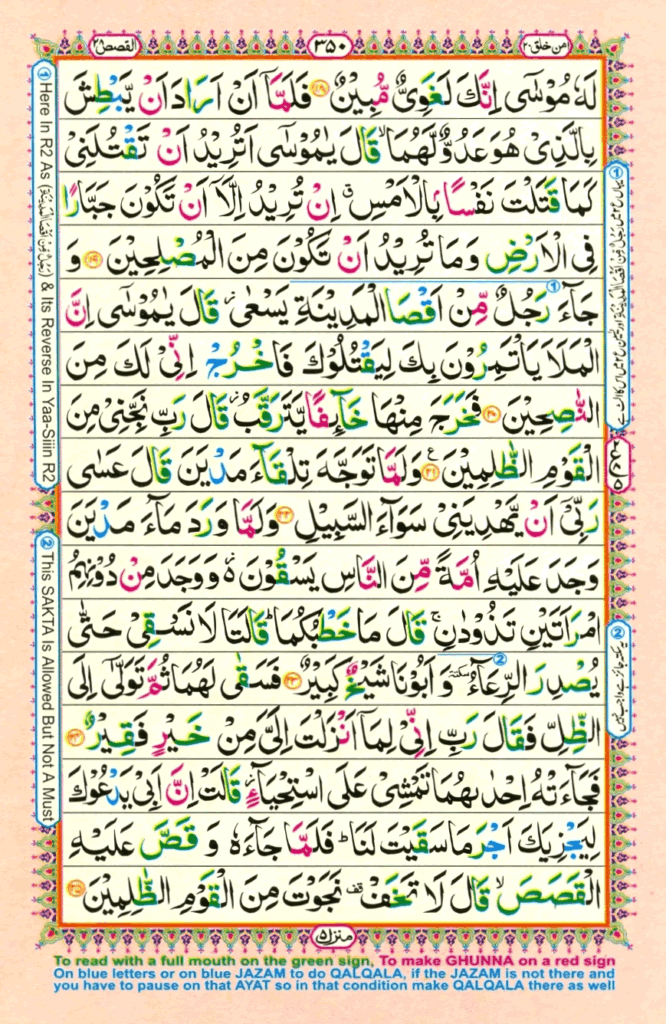 امن خلق ٢٠
٣٥٠
القصص ٢٨
لَهٗ مُوْسٰۤى اِنَّكَ لَغَوِىٌّ مُّبِيْنٌ ﴿١٨﴾ فَلَمَّاۤ اَنْ اَرَادَ اَنْ يَّبْطِشَ
بِالَّذِىْ هُوَ عَدُوٌّ لَّهُمَا ۙ قَالَ يٰمُوْسٰٓى اَتُرِيْدُ اَنْ تَقْتُلَنِىْ
كَمَا قَتَلْتَ نَفْسًۢا بِالْاَمْسِ ۖ اِنْ تُرِيْدُ اِلَّاۤ اَنْ تَكُوْنَ جَبَّارًا
فِى الْاَرْضِ وَمَا تُرِيْدُ اَنْ تَكُوْنَ مِنَ الْمُصْلِحِيْنَ ﴿١٩﴾ وَ
جَآءَ رَجُلٌ مِّنْ اَقْصَا الْمَدِيْنَةِ يَسْعٰى ۫ قَالَ يٰمُوْسٰٓى اِنَّ
الْمَلَاَ يَاْتَمِرُوْنَ بِكَ لِيَقْتُلُوْكَ فَاخْرُجْ اِنِّىْ لَكَ مِنَ
النّٰصِحِيْنَ ﴿٢٠﴾ فَخَرَجَ مِنْهَا خَآئِفًا يَّتَرَقَّبُ ۫ قَالَ رَبِّ نَجِّنِىْ مِنَ
الْقَوْمِ الظّٰلِمِيْنَ ﴿٢١﴾ ع وَلَمَّا تَوَجَّهَ تِلْقَآءَ مَدْيَنَ قَالَ عَسٰى
رَبِّىْۤ اَنْ يَّهْدِيَنِىْ سَوَآءَ السَّبِيْلِ ﴿٢٢﴾ وَلَمَّا وَرَدَ مَآءَ مَدْيَنَ
وَجَدَ عَلَيْهِ اُمَّةً مِّنَ النَّاسِ يَسْقُوْنَ ۬ وَوَجَدَ مِنْ دُوْنِهِمُ
امْرَاَتَيْنِ تَذُوْدٰنِ ۚ قَالَ مَا خَطْبُكُمَا ؕ قَالَتَا لَا نَسْقِىْ حَتّٰى
يُصْدِرَ الرِّعَآءُ سكتة وَاَبُوْنَا شَيْخٌ كَبِيْرٌ ﴿٢٣﴾ فَسَقٰى لَهُمَا ثُمَّ تَوَلّٰٓى اِلَى
الظِّلِّ فَقَالَ رَبِّ اِنِّىْ لِمَاۤ اَنْزَلْتَ اِلَىَّ مِنْ خَيْرٍ فَقِيْرٌ ﴿٢٤﴾
فَجَآءَتْهُ اِحْدٰىهُمَا تَمْشِىْ عَلَى اسْتِحْيَآءٍ ؗ قَالَتْ اِنَّ اَبِىْ يَدْعُوْكَ
لِيَجْزِيَكَ اَجْرَ مَا سَقَيْتَ لَنَا ؕ فَلَمَّا جَآءَهٗ وَ قَصَّ عَلَيْهِ
الْقَصَصَ ۙ قَالَ لَا تَخَفْ ۥ قف نَجَوْتَ مِنَ الْقَوْمِ الظّٰلِمِيْنَ ﴿٢٥﴾
منزل ٥
① Here In R2 As (رَجُلٌ مِّنْ اَقْصَا الْمَدِيْنَةِ) & Its Reverse In Yaa-Siiin R2
② This SAKTA Is Allowed But Not A Must
② یہ سکتہ جائز ہے واجب نہیں
To read with a full mouth on the green sign, To make GHUNNA on a red sign
On blue letters or on blue JAZAM to do QALQALA, if the JAZAM is not there and
you have to pause on that AYAT so in that condition make QALQALA there as well